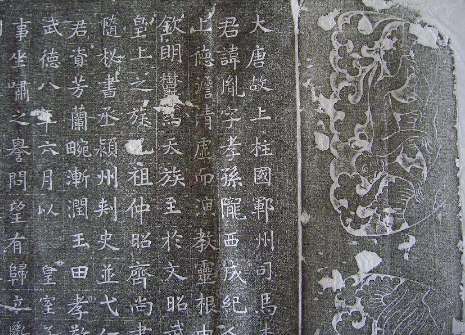 大唐故上柱國鄆州司馬
君諱胤字孝孫隴西成紀人
上德澹清虛而演教靈根
欽明鬱為天族至於文昭武
皇上之族兄祖仲昭齊尚書
隨秘書丞潁州刺史並弋
君資芳蘭畹漸潤玉田孝
武德八年六月以 皇室
事坐嘯之譽問望有歸立